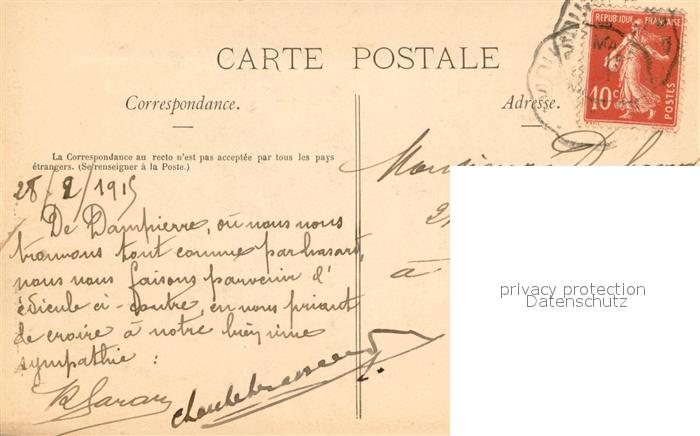 CARTE POSTALE
REPUBLIQUE FRANÇAISE
10c
POSTES
Correspondance.
Adresse.
La Correspondance au recto n'est pas acceptée par tous les pays
étrangers. (Se renseigner à la Poste.)
28/2/1915
De Dampierre, où nous nous
trouvons tout comme par hasard,
nous nous faisons parvenir l'
édicule ci-contre, en vous priant
de croire à notre
sympathie :
Monsieur
à
privacy protection
Datenschutz